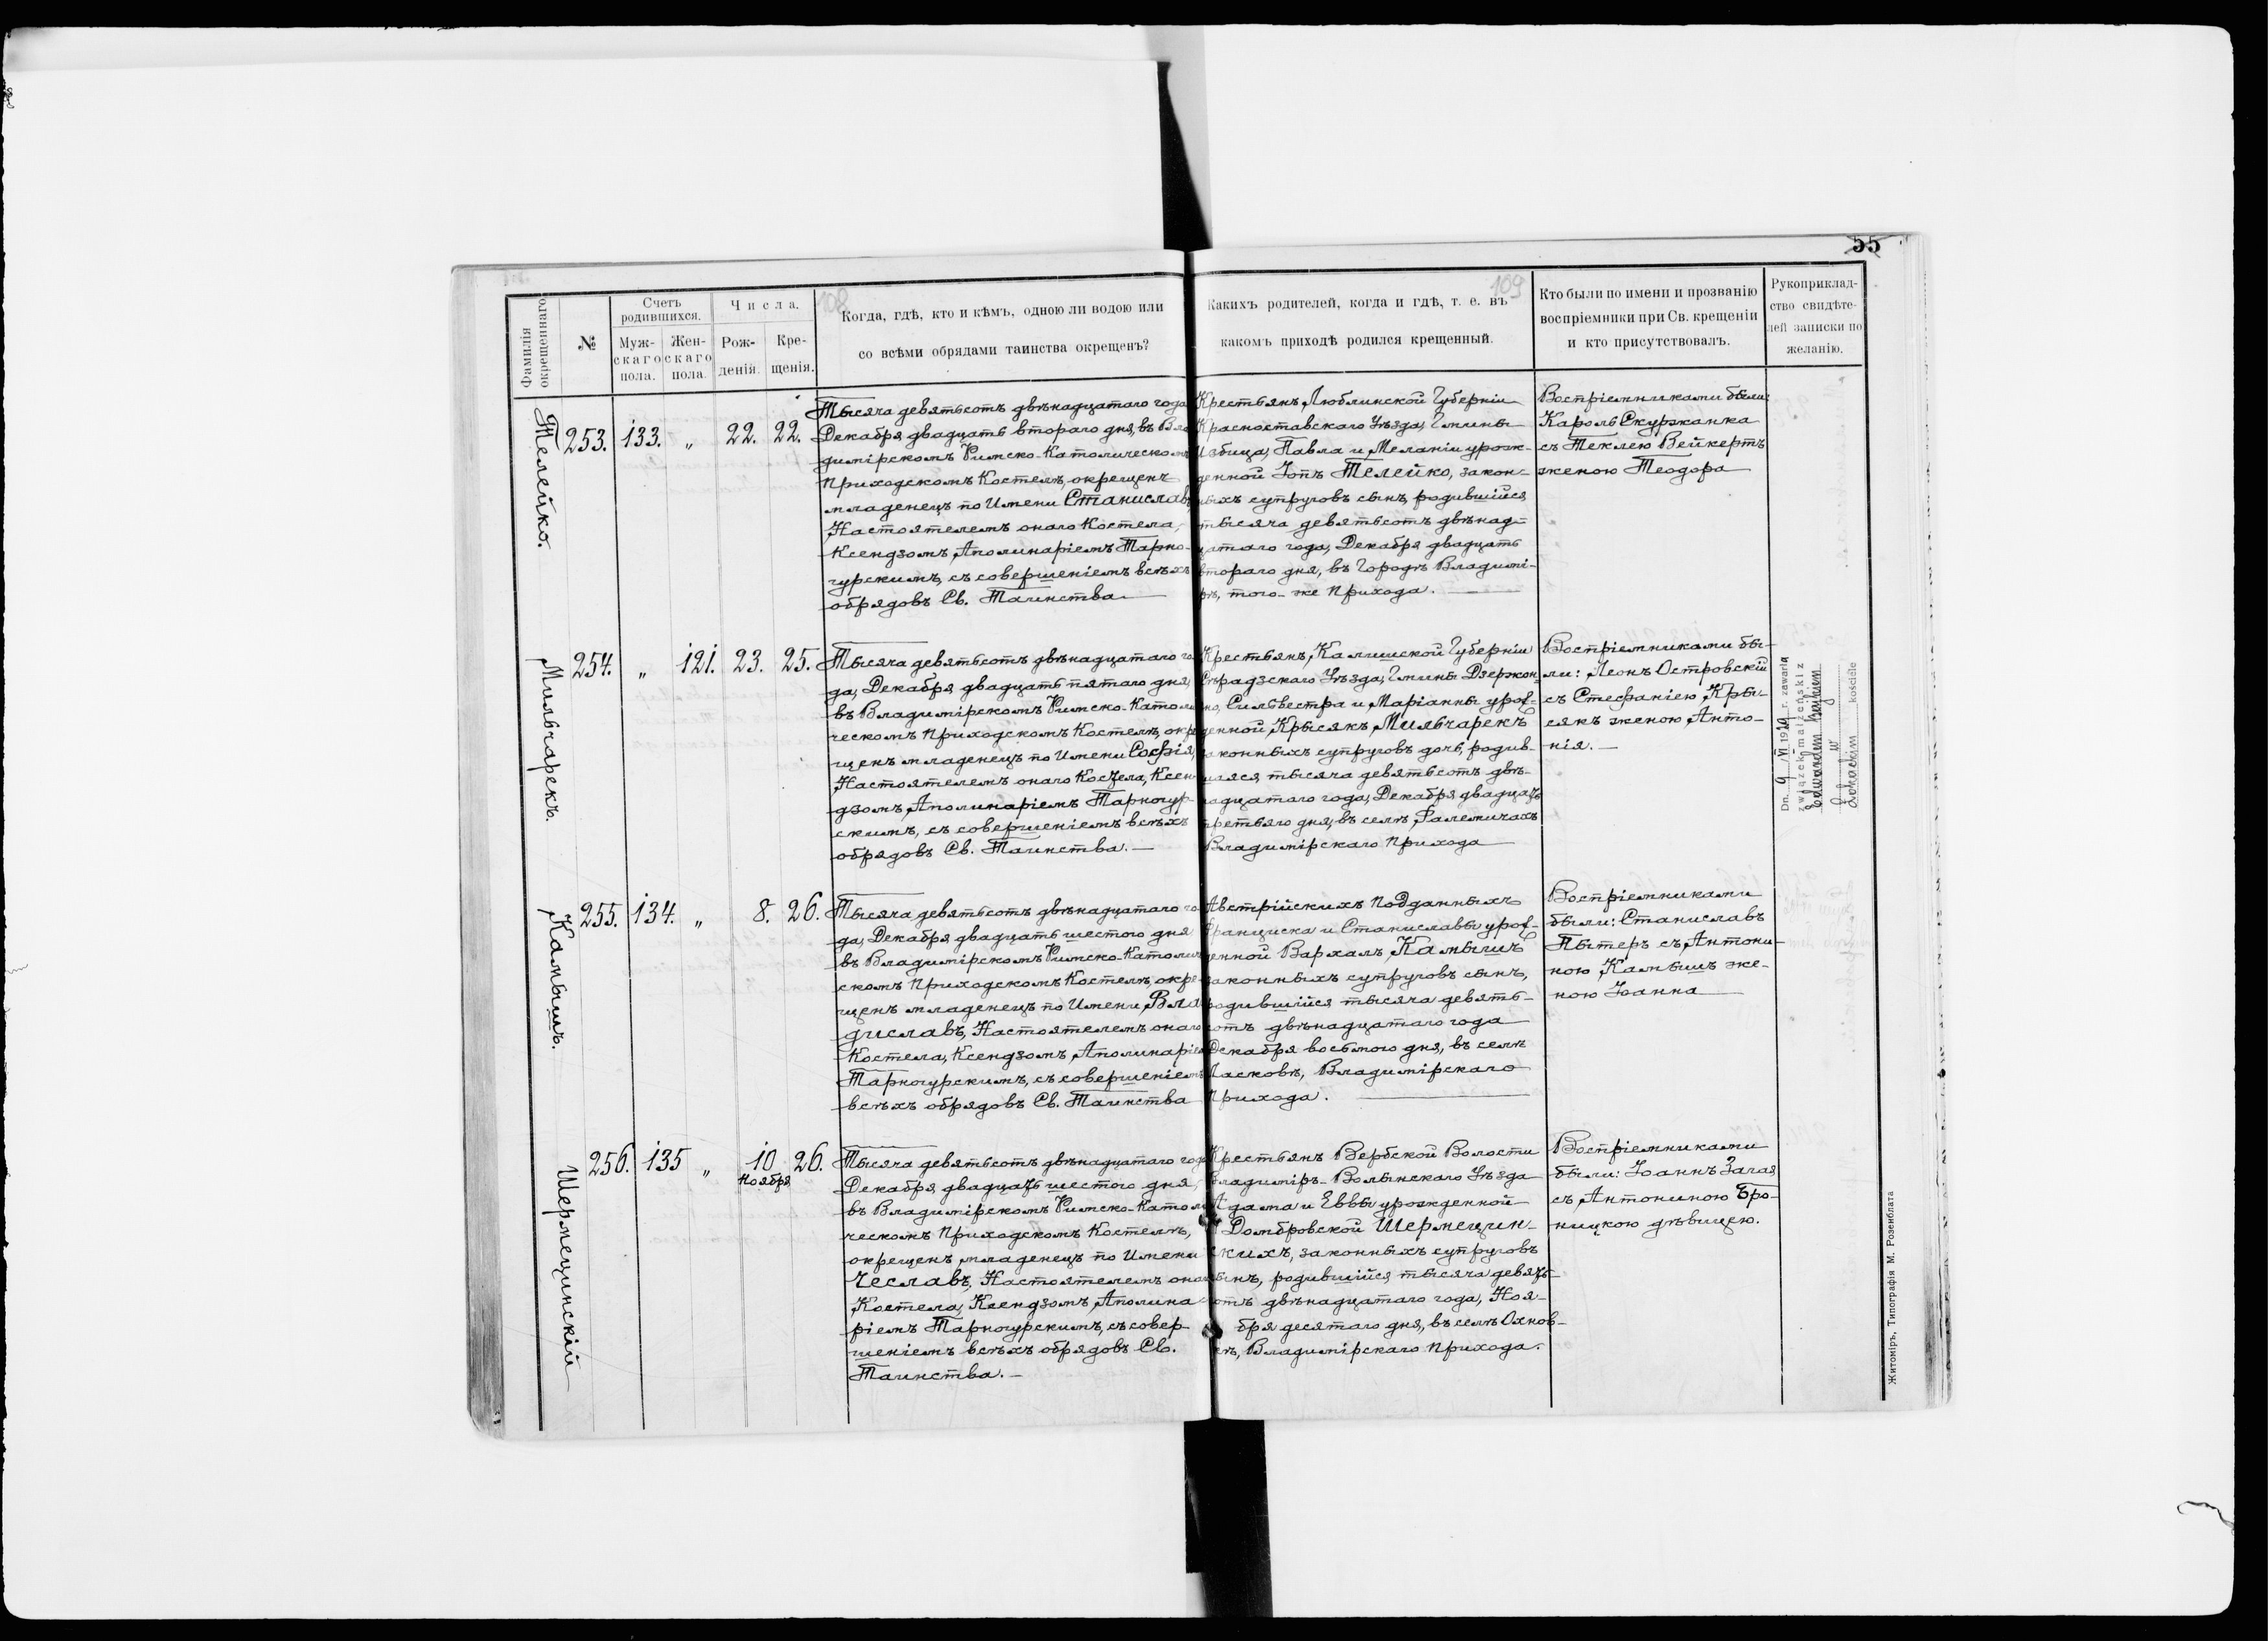 55
108
109
Фамилія окрещеннаго
№
Счетъ родившихся.
Муж-скаго пола.
Жен-скаго пола.
Числа.
Рож-денія.
Кре-щенія.
Когда, гдѣ, кто и кѣмъ, одною ли водою или
со всѣми обрядами таинства окрещенъ?
Какихъ родителей, когда и гдѣ, т. е. въ
какомъ приходѣ родился крещенный.
Кто были по имени и прозванію
воспріемники при Св. крещеніи
и кто присутствовалъ.
Рукоприклад-
ство свидѣте-
лей записки по
желанію.
Телейко.
253. 133. „ 22. 22.
Тысяча девятьсотъ двѣнадцатаго года
Декабря двадцать втораго дня, въ Вла
димірскомъ Римско-Католическомъ
Приходскомъ Костелѣ, окрещенъ
младенецъ по Имени Станиславъ
Настоятелемъ онаго Костела,
Ксендзомъ Аполинаріемъ Тарно-
гурскимъ, съ совершеніемъ всѣхъ
обрядовъ Св. Таинства
Крестьянъ, Люблинской Губерніи
Красноставскаго Уѣзда, Гмины
Избица, Павла и Меланіи урож-
денной Телейко, закон-
ныхъ супруговъ сынъ, родившійся
тысяча девятьсотъ двѣнад-
цатаго года, Декабря двадцать
втораго дня, въ Городѣ Владимі-
рѣ, того-же Прихода.
Воспріемниками были:
Кароль Скуржанка
съ Теклею Вейкертъ
женою Теодора
Мильчарекъ.
254. „ 121. 23. 25.
Тысяча девятьсотъ двѣнадцатаго го
да, Декабря двадцать пятаго дня,
въ Владимірскомъ Римско-Католи
ческомъ Приходскомъ Костелѣ, окре
щенъ младенецъ по Имени Софія,
Настоятелемъ онаго Костела, Ксен
дзомъ Аполинаріемъ Тарногур-
скимъ, съ совершеніемъ всѣхъ
обрядовъ Св. Таинства.
Крестьянъ, Калишской Губерніи
Сѣрадзскаго Уѣзда, Гмины Дзержон-
но, Сильвестра и Маріанны урож-
денной Крысякъ, Мильчарекъ
законныхъ супруговъ дочь, родив-
шаяся тысяча девятьсотъ двѣ-
надцатаго года, Декабря двадцать
третьяго дня, въ селѣ Фалемичахъ
Владимірскаго Прихода
Воспріемниками бы-
ли: Леонъ Островскій
съ Стефаніею Кры-
сякъ женою Анто-
нія.
Dn. 9 VI 1929 r. zawarła
związek małżeński z
Edwardem
w
Łokackim kościele
Камышъ.
255. 134. „ 8. 26.
Тысяча девятьсотъ двѣнадцатаго го
да, Декабря двадцать шестого дня
въ Владимірскомъ Римско-Католиче
скомъ Приходскомъ Костелѣ, окре-
щенъ младенецъ по Имени Вла
диславъ, Настоятелемъ онаго
Костела, Ксендзомъ Аполинаріемъ
Тарногурскимъ, съ совершеніемъ
всѣхъ обрядовъ Св. Таинства
Австрійскихъ Подданныхъ
Франциска и Станиславы урож-
денной Вархалъ, Камышъ
законныхъ супруговъ сынъ,
родившійся тысяча девять-
сотъ двѣнадцатаго года
Декабря восьмого дня, въ селѣ
Ласковѣ, Владимірскаго
Прихода.
Воспріемниками
были: Станиславъ
Пытеръ съ Антони-
ною Камышъ же-
ною Іоанна
Шермецинскій
256. 135 „ 10 Ноября 26.
Тысяча девятьсотъ двѣнадцатаго года
Декабря двадцать шестого дня,
въ Владимірскомъ Римско-Католи
ческомъ Приходскомъ Костелѣ,
окрещенъ младенецъ по Имени
Чеславъ, Настоятелемъ онаго
Костела, Ксендзомъ Аполина-
ріемъ Тарногурскимъ, съ совер-
шеніемъ всѣхъ обрядовъ Св.
Таинства.
Крестьянъ Вербской Волости
Владиміръ-Волынскаго Уѣзда
Адама и Еввы урожденной
Домбровской Шермецин-
скихъ, законныхъ супруговъ
сынъ, родившійся тысяча девять-
сотъ двѣнадцатаго года, Ноя-
бря десятаго дня, въ селѣ Охнов-
кѣ, Владимірскаго Прихода.
Воспріемниками
были: Іоаннъ Загая
съ Антониною Бро-
ницкою дѣвицею.
Житоміръ, Типографія М. Розенблата